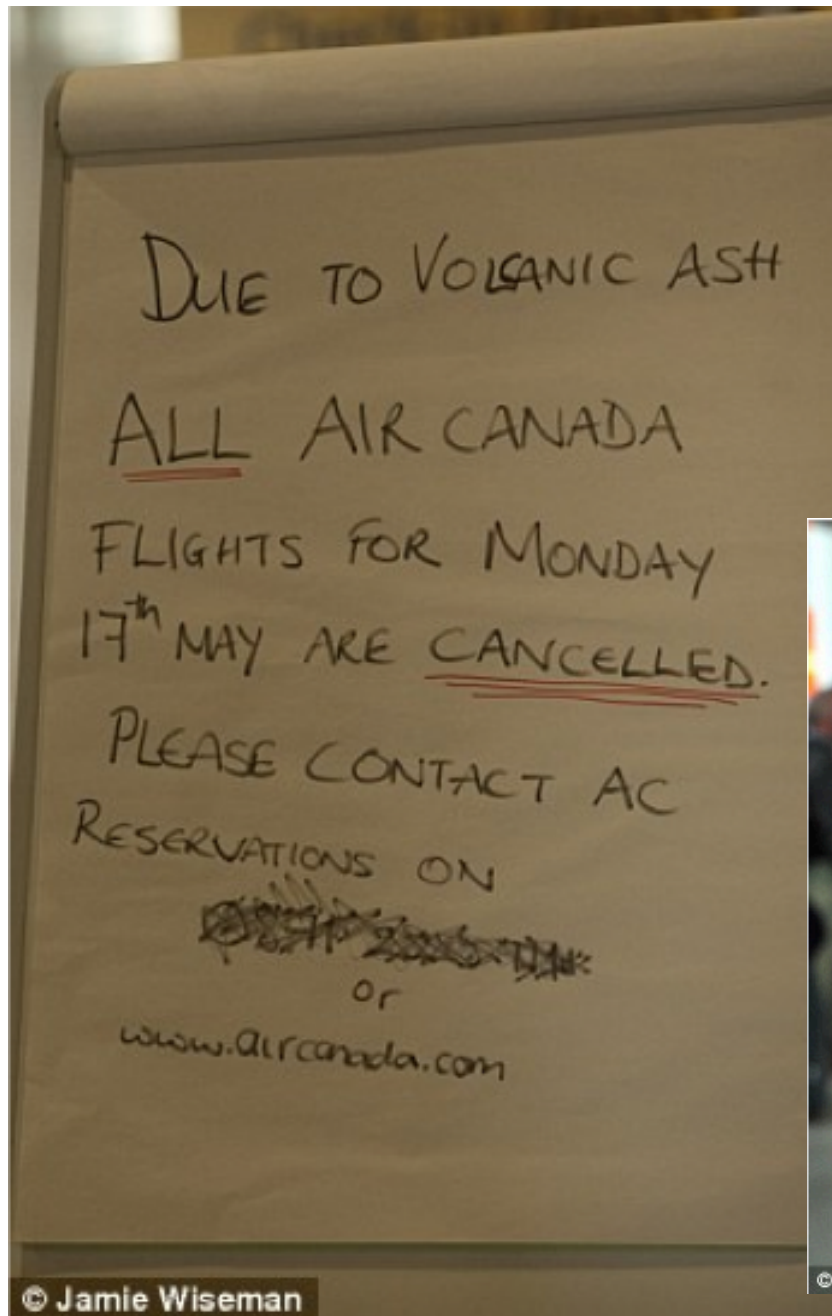 DUE TO VOLCANIC ASH
ALL AIR CANADA
FLIGHTS FOR MONDAY
17th MAY ARE CANCELLED.
PLEASE CONTACT AC
RESERVATIONS ON
or
www.aircanada.com
© Jamie Wiseman
©